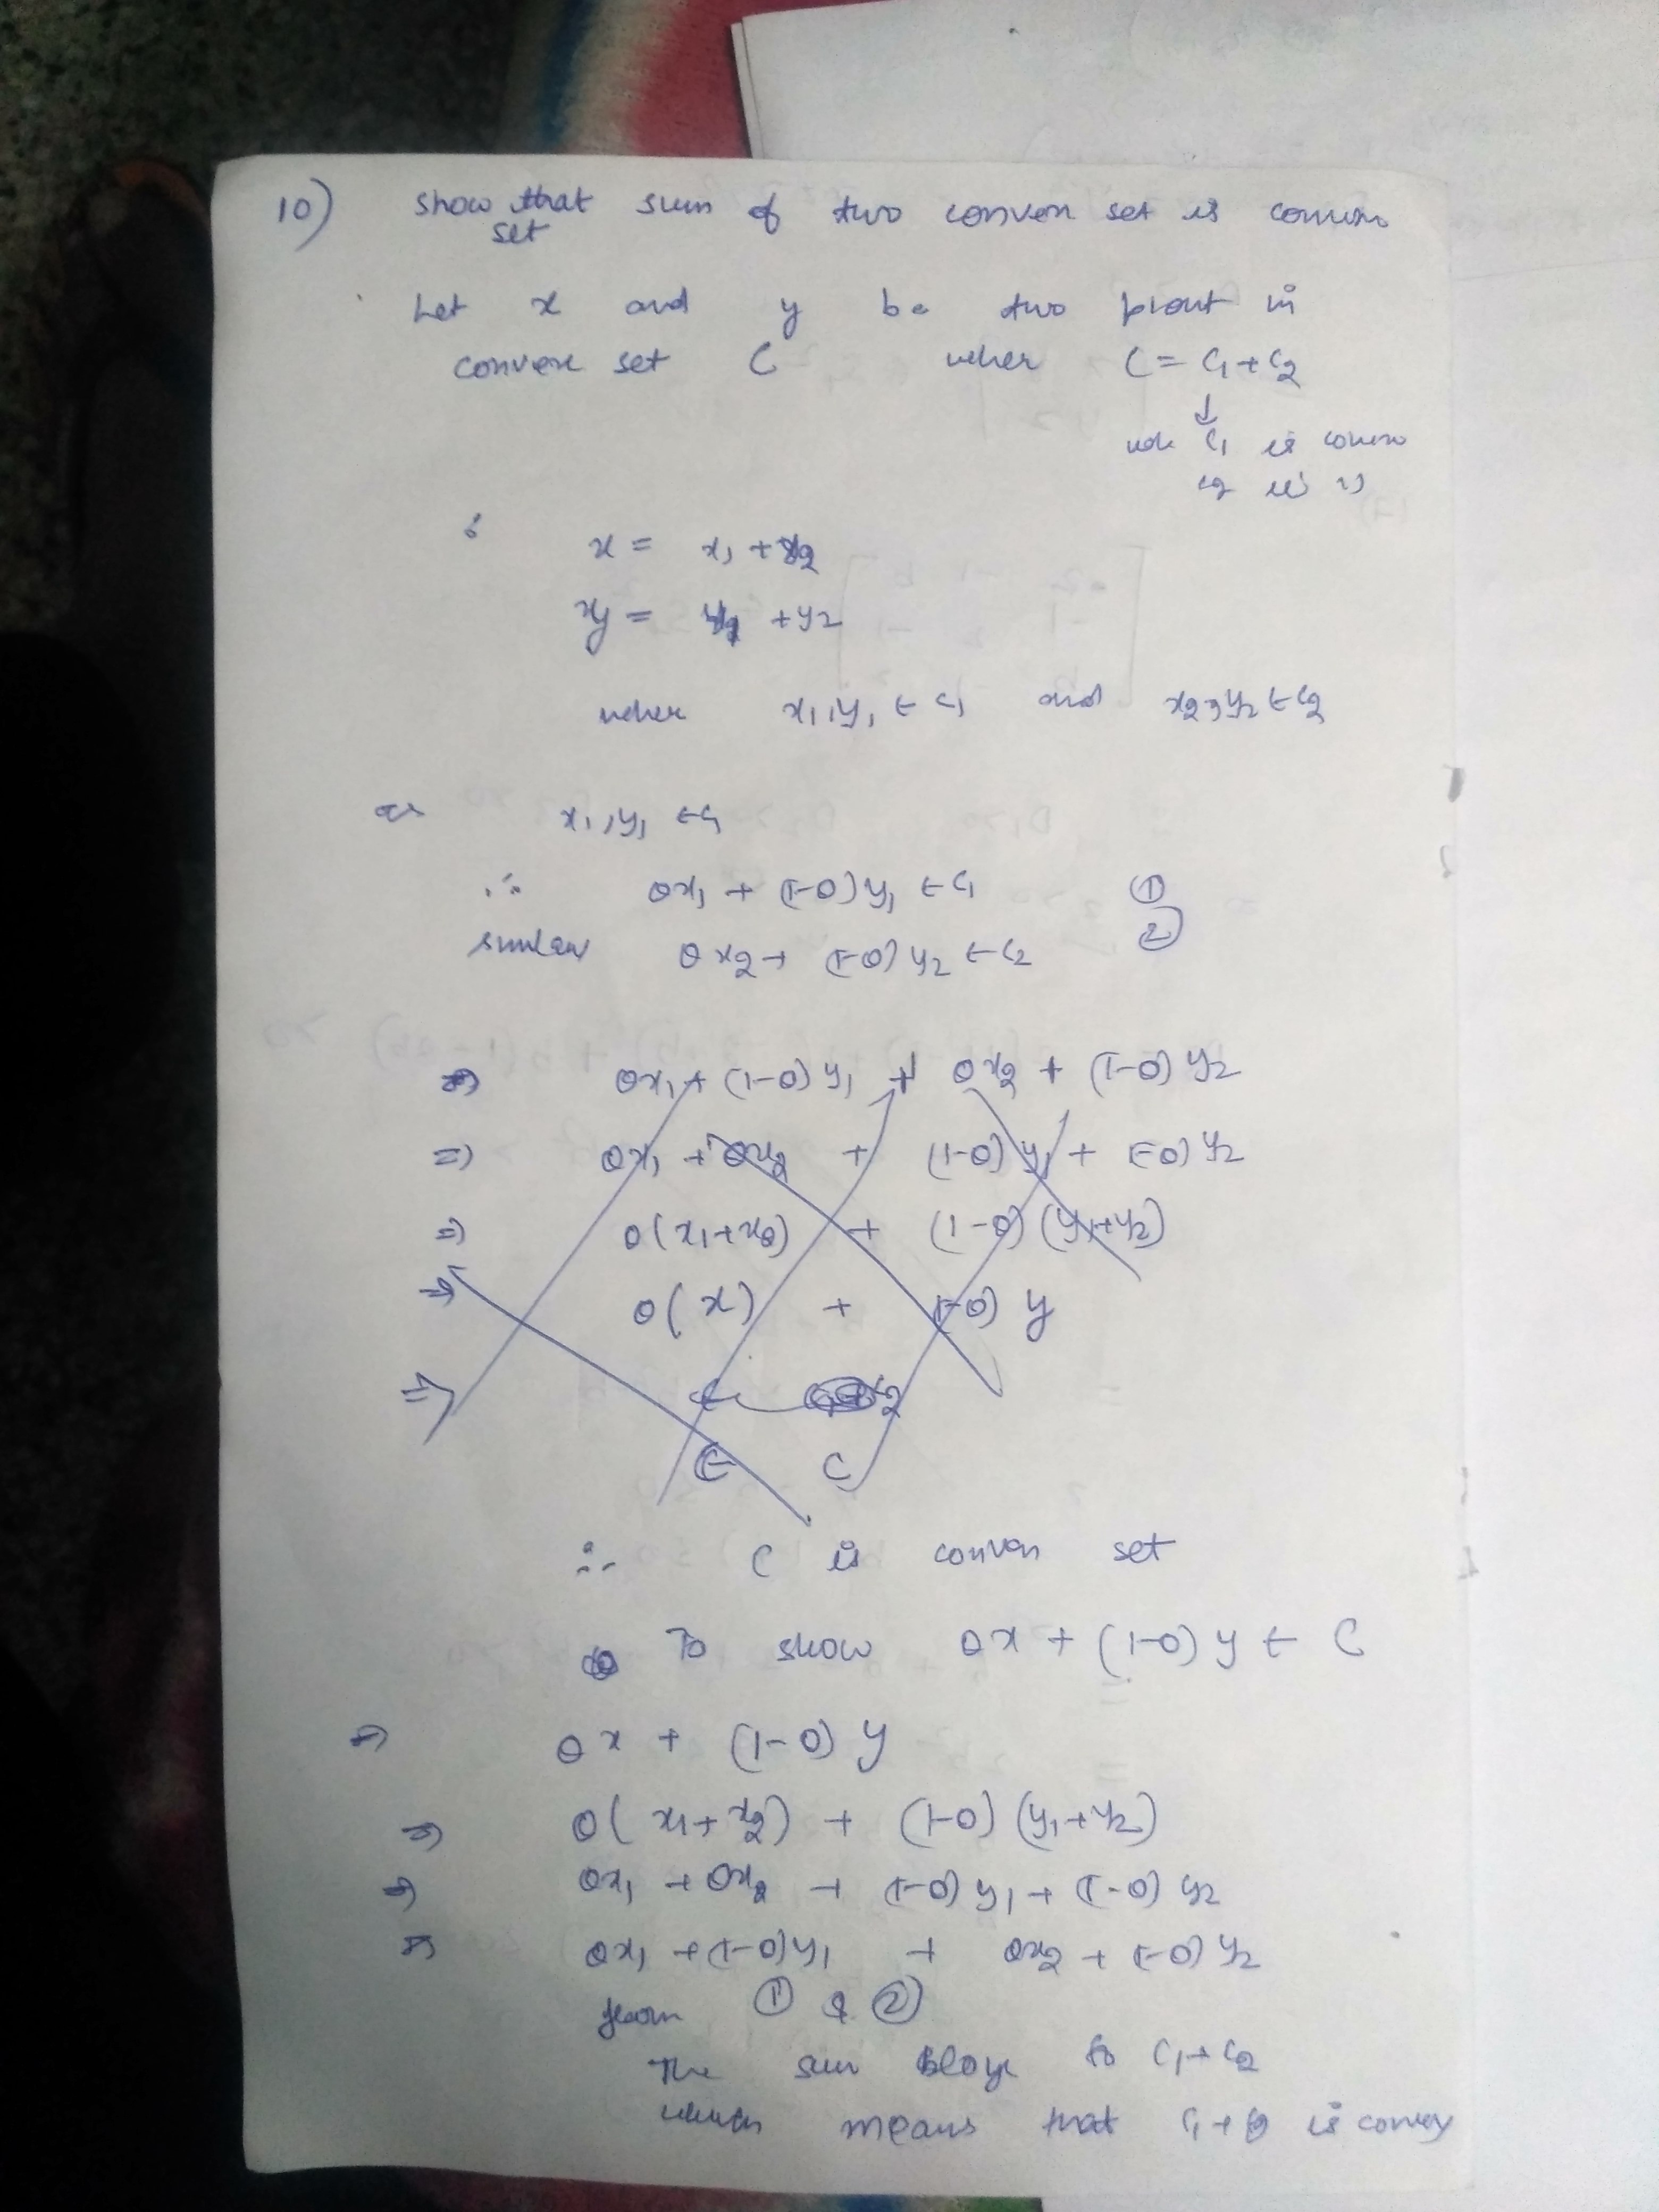 10) show that sum of two convex set is convex
set
Let x and y be two point in
convex set C where C = C₁ + C₂
↓
C₁ is convex
C₂ is ''
x = x₁ + x₂
y = y₁ + y₂
where x₁, y₁ ∈ C₁ and x₂, y₂ ∈ C₂
as x₁, y₁ ∈ C₁
∴ θx₁ + (1-θ) y₁ ∈ C₁ ①
similar θx₂ + (1-θ) y₂ ∈ C₂ ②
⇒ θx₁ + (1-θ) y₁ + θx₂ + (1-θ) y₂
⇒ θx₁ + θx₂ + (1-θ) y₁ + (1-θ) y₂
⇒ θ(x₁+x₂) + (1-θ) (y₁+y₂)
⇒ θ(x) + (1-θ) y
⇒ ∈
∈ C
∴ C is convex set
To show θx + (1-θ) y ∈ C
⇒ θx + (1-θ) y
⇒ θ(x₁+x₂) + (1-θ) (y₁+y₂)
⇒ θx₁ + θx₂ + (1-θ) y₁ + (1-θ) y₂
⇒ θx₁ + (1-θ) y₁ + θx₂ + (1-θ) y₂
from ① & ②
The sum to C₁ + C₂
which means that C₁ + C₂ is convex